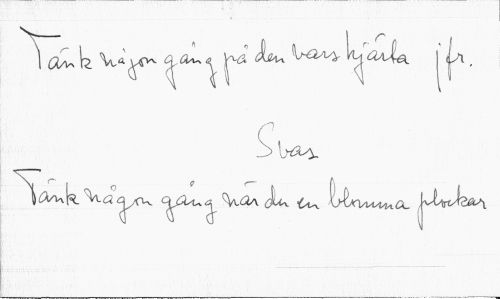 Tänk någon gång på den vars hjärta jfr.
Svar
Tänk någon gång när du en blomma plockar